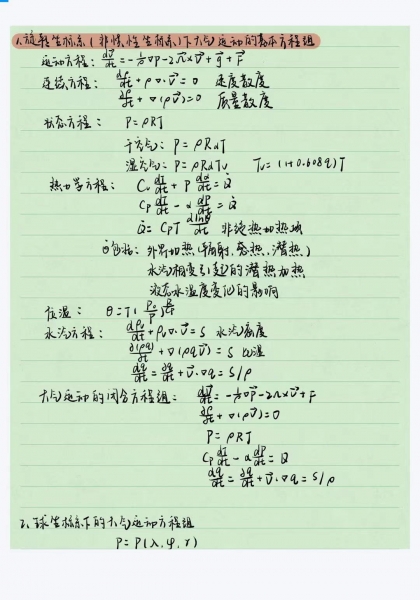 1.旋转坐标系(非惯性坐标系)下大气运动的基本方程组
运动方程: dv⃗/dt = -1/ρ ∇P - 2Ω×v⃗ + g⃗ + F⃗
连续方程: dρ/dt + ρ∇·v⃗ = 0 速度散度
∂ρ/∂t + ∇(ρv⃗) = 0 质量散度
状态方程: P = ρRT
干空气: P = ρRdT
湿空气: P = ρRdTv Tv = (1+0.608q)T
热力学方程: Cv dT/dt + P dα/dt = Q̇
Cp dT/dt - α dP/dt = Q̇
Q̇ = CpT dlnθ/dt 非绝热加热项
Q̇包括: 外界加热(辐射,感热,潜热)
水汽相变引起的潜热加热
液态水温度变化的影响
位温: θ = T(P₀/P)^(R/Cp)
水汽方程: dρv/dt + ρv∇·v⃗ = S 水汽密度
∂(ρq)/∂t + ∇(ρqv⃗) = S 比湿
dq/dt = ∂q/∂t + v⃗·∇q = S/ρ
大气运动的闭合方程组: dv⃗/dt = -1/ρ ∇P - 2Ω×v⃗ + F
∂ρ/∂t + ∇(ρv⃗) = 0
P = ρRT
Cp dT/dt - α dP/dt = Q
dq/dt = ∂q/∂t + v⃗·∇q = S/ρ
2.球坐标系下的大气运动方程组
P = P(λ,φ,r)